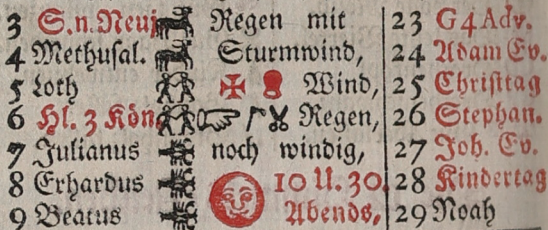 3 S. n. Neuj. Regen mit 23 G 4 Adv.
4 Methusal. Sturmwind, 24 Adam Ev.
5 Loth Wind, 25 Christtag
6 Hl. 3 Kön. Regen, 26 Stephan.
7 Julianus noch windig, 27 Joh. Ev.
8 Erhardus 10 U. 30. 28 Kindertag
9 Beatus Abends, 29 Noah